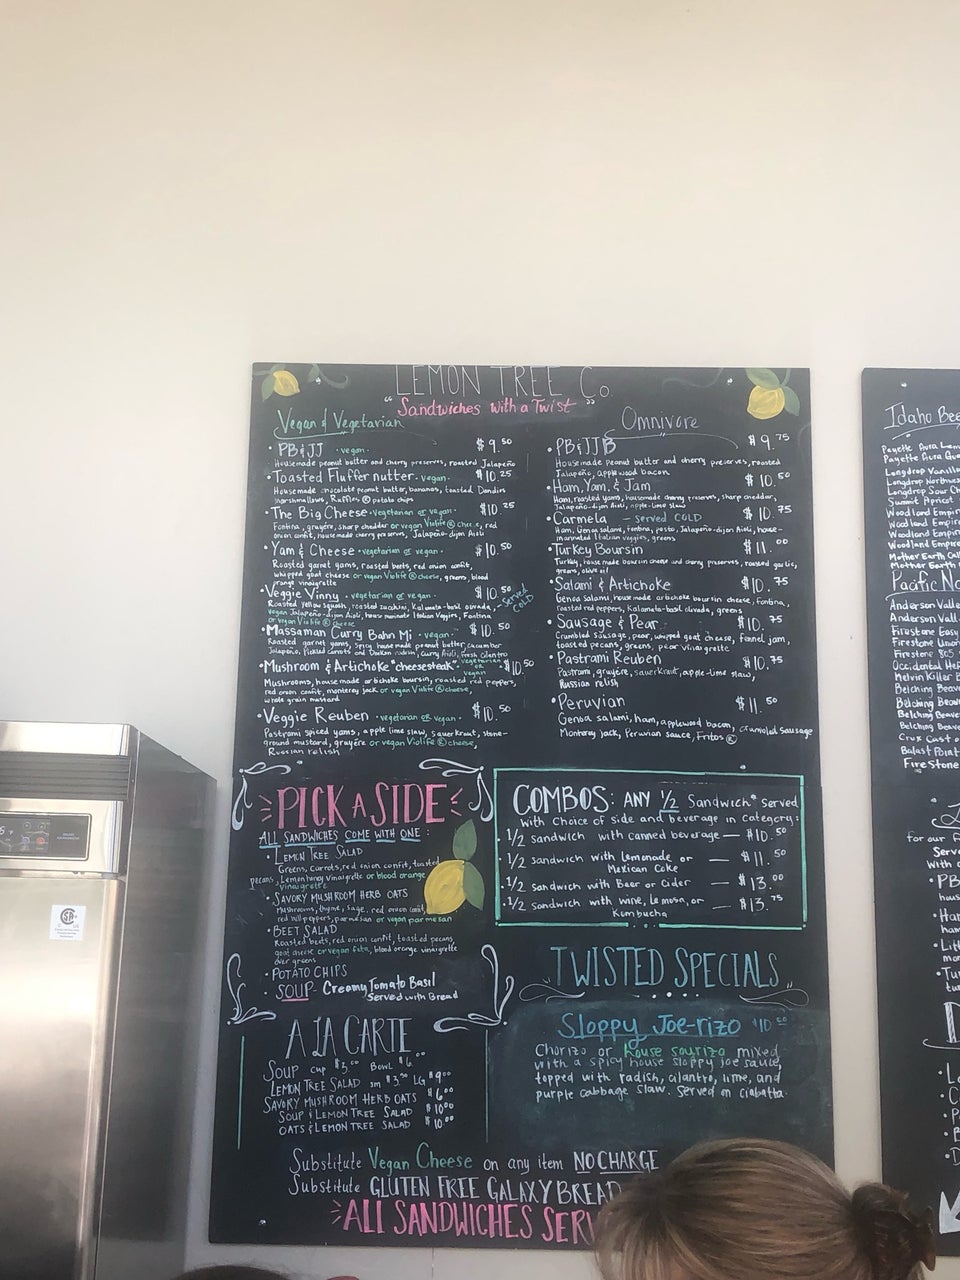 LEMON TREE Co.
"Sandwiches with a Twist"
Vegan & Vegetarian
• PB&JJ • vegan • $9.50
Housemade peanut butter and cherry preserves, roasted Jalapeño
• Toasted Fluffernutter • vegan • $10.25
Housemade chocolate peanut butter, bananas, toasted Dandies
marshmallows, Ruffles ® potato chips
• The Big Cheese • vegetarian or vegan • $10.25
Fontina, gruyére, sharp cheddar or vegan Violife ® cheese, red
onion confit, housemade cherry preserves, Jalapeño-dijon Aioli
• Yam & Cheese • vegetarian or vegan • $10.50
Roasted garnet yams, roasted beets, red onion confit,
whipped goat cheese or vegan Violife ® cheese, greens, blood
orange vinaigrette
• Veggie Vinny • vegetarian or vegan • $10.50 - Served COLD
Roasted yellow squash, roasted zucchini, Kalamata-basil olivada,
vegan Jalapeño-dijon Aioli, house marinate Italian Veggies, Fontina
or vegan Violife ® cheese
• Massaman Curry Bahn Mi • vegan • $10.50
Roasted garnet yams, Spicy house made peanut butter, cucumber
Jalapeño, Pickled carrots and Daikon radish, Curry Aioli, fresh cilantro
• Mushroom & Artichoke "cheesesteak" • vegetarian or vegan $10.50
Mushrooms, housemade artichoke boursin, roasted red peppers,
red onion confit, monterey jack or vegan Violife ® cheese,
whole grain mustard
• Veggie Reuben • vegetarian or vegan • $10.50
Pastrami spiced yams, apple lime slaw, sauerkraut, stone-
ground mustard, gruyére or vegan Violife ® cheese,
Russian relish
Omnivore
• PB&JJB $9.75
Housemade peanut butter and cherry preserves, roasted
Jalapeño, applewood bacon
• Ham, Yam, & Jam $10.50
Ham, roasted yams, housemade cherry preserves, sharp cheddar,
Jalapeño-dijon Aioli, apple-lime slaw
• Carmela - served COLD $10.75
Ham, Genoa salami, fontina, pesto, Jalapeño-dijon Aioli, house-
marinated Italian veggies, greens
• Turkey Boursin $11.00
Turkey, house made boursin cheese and cherry preserves, roasted garlic,
greens, olive oil
• Salami & Artichoke $10.75
Genoa salami, housemade artichoke boursin cheese, Fontina,
roasted red peppers, Kalamata-basil olivada, greens
• Sausage & Pear $10.75
Crumbled sausage, pear, whipped goat cheese, fennel jam,
toasted pecans, greens, pear vinaigrette
• Pastrami Reuben $10.75
Pastrami, gruyére, sauerkraut, apple-lime slaw,
Russian relish
• Peruvian $11.50
Genoa salami, ham, applewood bacon, crumbled sausage
Monterey Jack, Peruvian sauce, Fritos ®
PICK A SIDE
ALL SANDWICHES COME WITH ONE:
• LEMON TREE SALAD
Greens, carrots, red onion confit, toasted
pecans, Lemon thing vinaigrette or blood orange
vinaigrette
• SAVORY MUSHROOM HERB OATS
Mushrooms, thyme, sage, red onion confit,
red bell peppers, parmesan or vegan parmesan
• BEET SALAD
Roasted beets, red onion confit, toasted pecans,
goat cheese or vegan feta, blood orange vinaigrette
over greens
• POTATO CHIPS
• SOUP - Creamy Tomato Basil
Served with Bread
COMBOS: ANY 1/2 Sandwich* served
with choice of side and beverage in category:
• 1/2 sandwich with canned beverage — $10.50
• 1/2 sandwich with Lemonade or — $11.50
Mexican Coke
• 1/2 sandwich with Beer or Cider — $13.00
• 1/2 sandwich with wine, Lemosa, or — $13.75
Kombucha
A LA CARTE
SOUP cup $3.00 Bowl $6.00
LEMON TREE SALAD sm $3.50 LG $9.00
SAVORY MUSHROOM HERB OATS $6.00
SOUP & LEMON TREE SALAD $10.00
OATS & LEMON TREE SALAD $10.00
TWISTED SPECIALS
Sloppy Joe-rizo $10.50
Chorizo or house sourizo mixed
with a spicy house sloppy joe sauce,
topped with radish, cilantro, lime, and
purple cabbage slaw. Served on ciabatta.
Substitute Vegan Cheese on any item NO CHARGE
Substitute GLUTEN FREE GALAXY BREAD
ALL SANDWICHES SER
Idaho Bee
Payette Aura Lem
Payette Aura Gua
Longdrop Vanilla
Longdrop Northwes
Longdrop Sour Ch
Summit Apricot
Woodland Empire
Woodland Empire
Woodland Empire
Woodland Empire
Mother Earth Cal
Mother Earth
Pacific No
Anderson Valle
Anderson Vall
Firestone Easy
Firestone Union
Firestone 805
Occidental He
Melvin Killer B
Belching Beave
Belching Beav
Belching Beave
Belching Beave
Crux Cast o
Ballast Point
Firestone
for our f
Serve
With
• PB
hous
• Ha
ham
• Li
mo
• Tu
tu